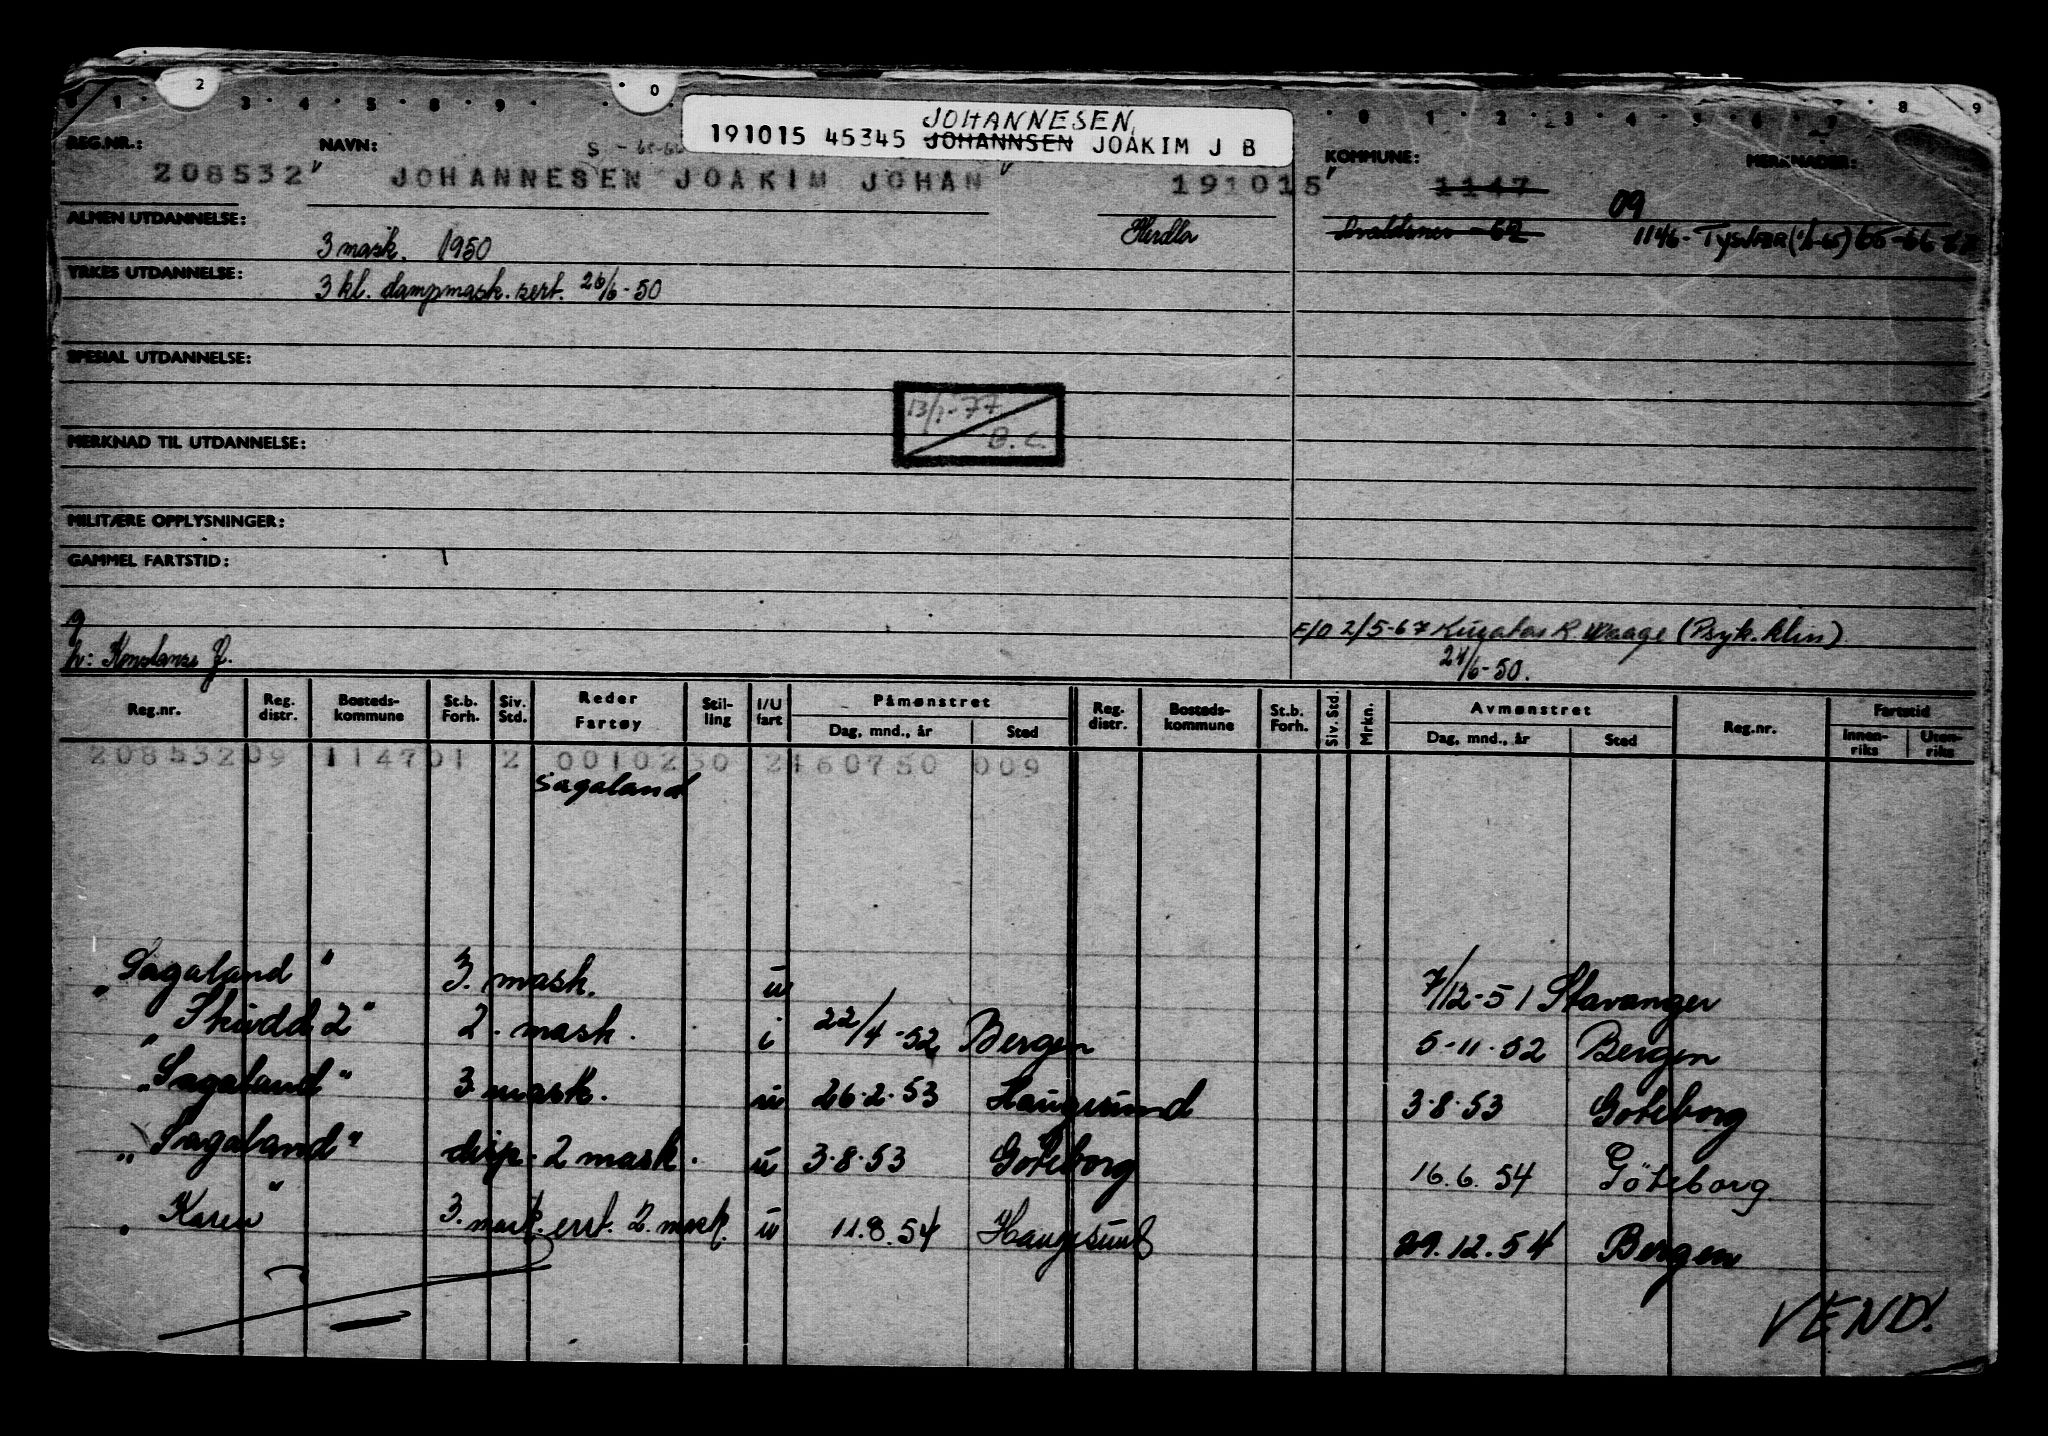 2 0
1 3 4 5 8 9 0 1 2 3 4 5 6 7 8 9
JOHANNESEN,
191015 45345 JOHANNSEN JOAKIM J B
REG.NR.: NAVN: KOMMUNE: MERKNADER:
208532 JOHANNESEN JOAKIM JOHAN 191015 1147
ALMEN UTDANNELSE: 09
3 mask. 1950 Herdla Avaldsnes - 62 1146 - TYSVÆR (1/1-65) 65-66-67
YRKES UTDANNELSE:
3 kl. dampmask. sert. 26/6-50
SPESIAL UTDANNELSE:
13/1-77
B. C.
MERKNAD TIL UTDANNELSE:
MILITÆRE OPPLYSNINGER:
GAMMEL FARTSTID:
g
h: Konstanse J. E/O 2/5-67 R Waage (Psyk. klin)
24/6-50.
Reg.nr. Reg. distr. Bosteds-kommune St.b. Forh. Siv. Std. Reder Fartøy Stil-ling I/U fart Påmønstret Dag, mnd., år Sted Reg. distr. Bosteds-kommune St.b. Forh. Siv. Std. Mrkn. Avmønstret Dag, mnd., år Sted Reg.nr. Fartstid Innen-riks Uten-riks
208532 09 1147 01 2 0010230 2 160750 009
Sagaland
"Sagaland" 3. mask. u 7/12-51 Stavanger
"Skudd 2" 2. mask. i 22/4-52 Bergen 5-11-52 Bergen
"Sagaland" 3 mask. u 26.2.53 Haugesund 3.8.53 Göteborg
"Sagaland" disp. 2 mask. u 3.8.53 Göteborg 16.6.54 Göteborg
"Karen" 3. mask. erst. 2. mask. u 11.8.54 Haugesund 29.12.54 Bergen
VEND!